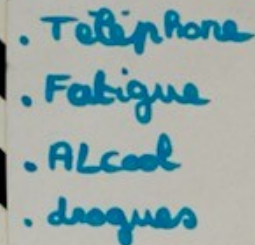 . Téléphone
. Fatigue
. ALcool
. drogues